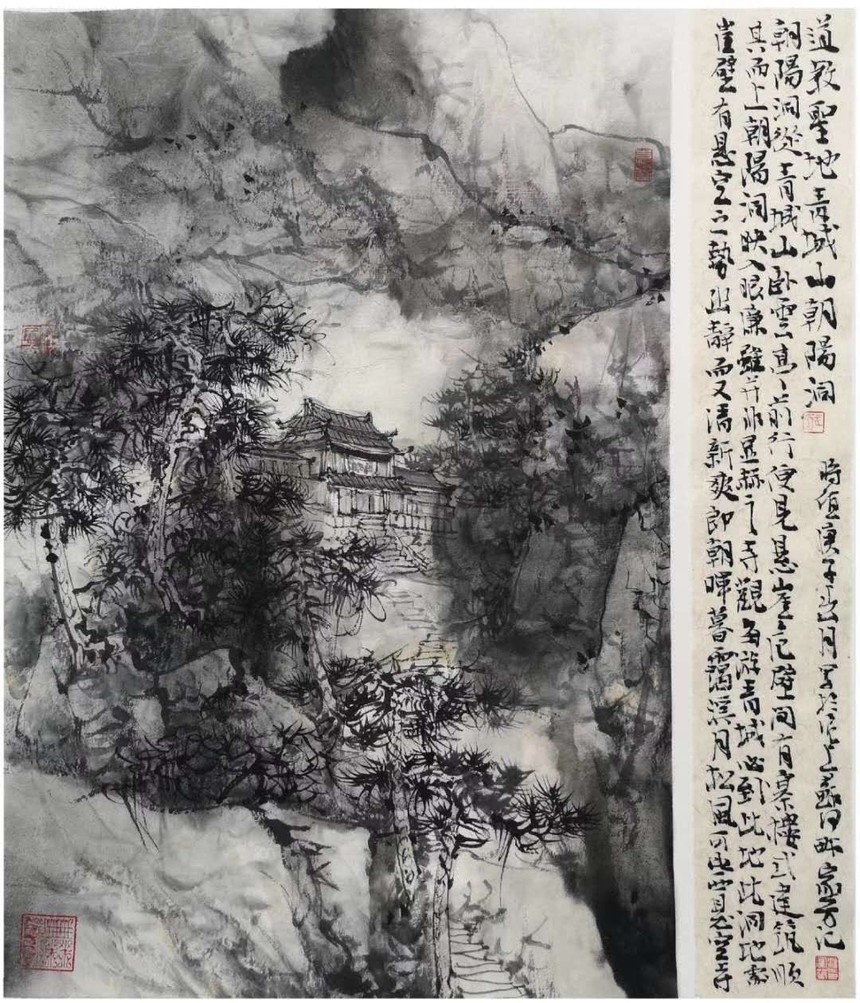 道教聖地青城山朝陽洞
時值庚子 月写於 家芳记
朝陽洞從青城山卧雲 前行便見悬崖危壁間有寨樓式建筑順
其而上朝陽洞映入眼廉雖并非显赫之寺觀每游青城必到此地此洞地靠
崖壁有悬空之勢幽靜而又清新爽即朝暉暮靄溪月松風可 悬空寺